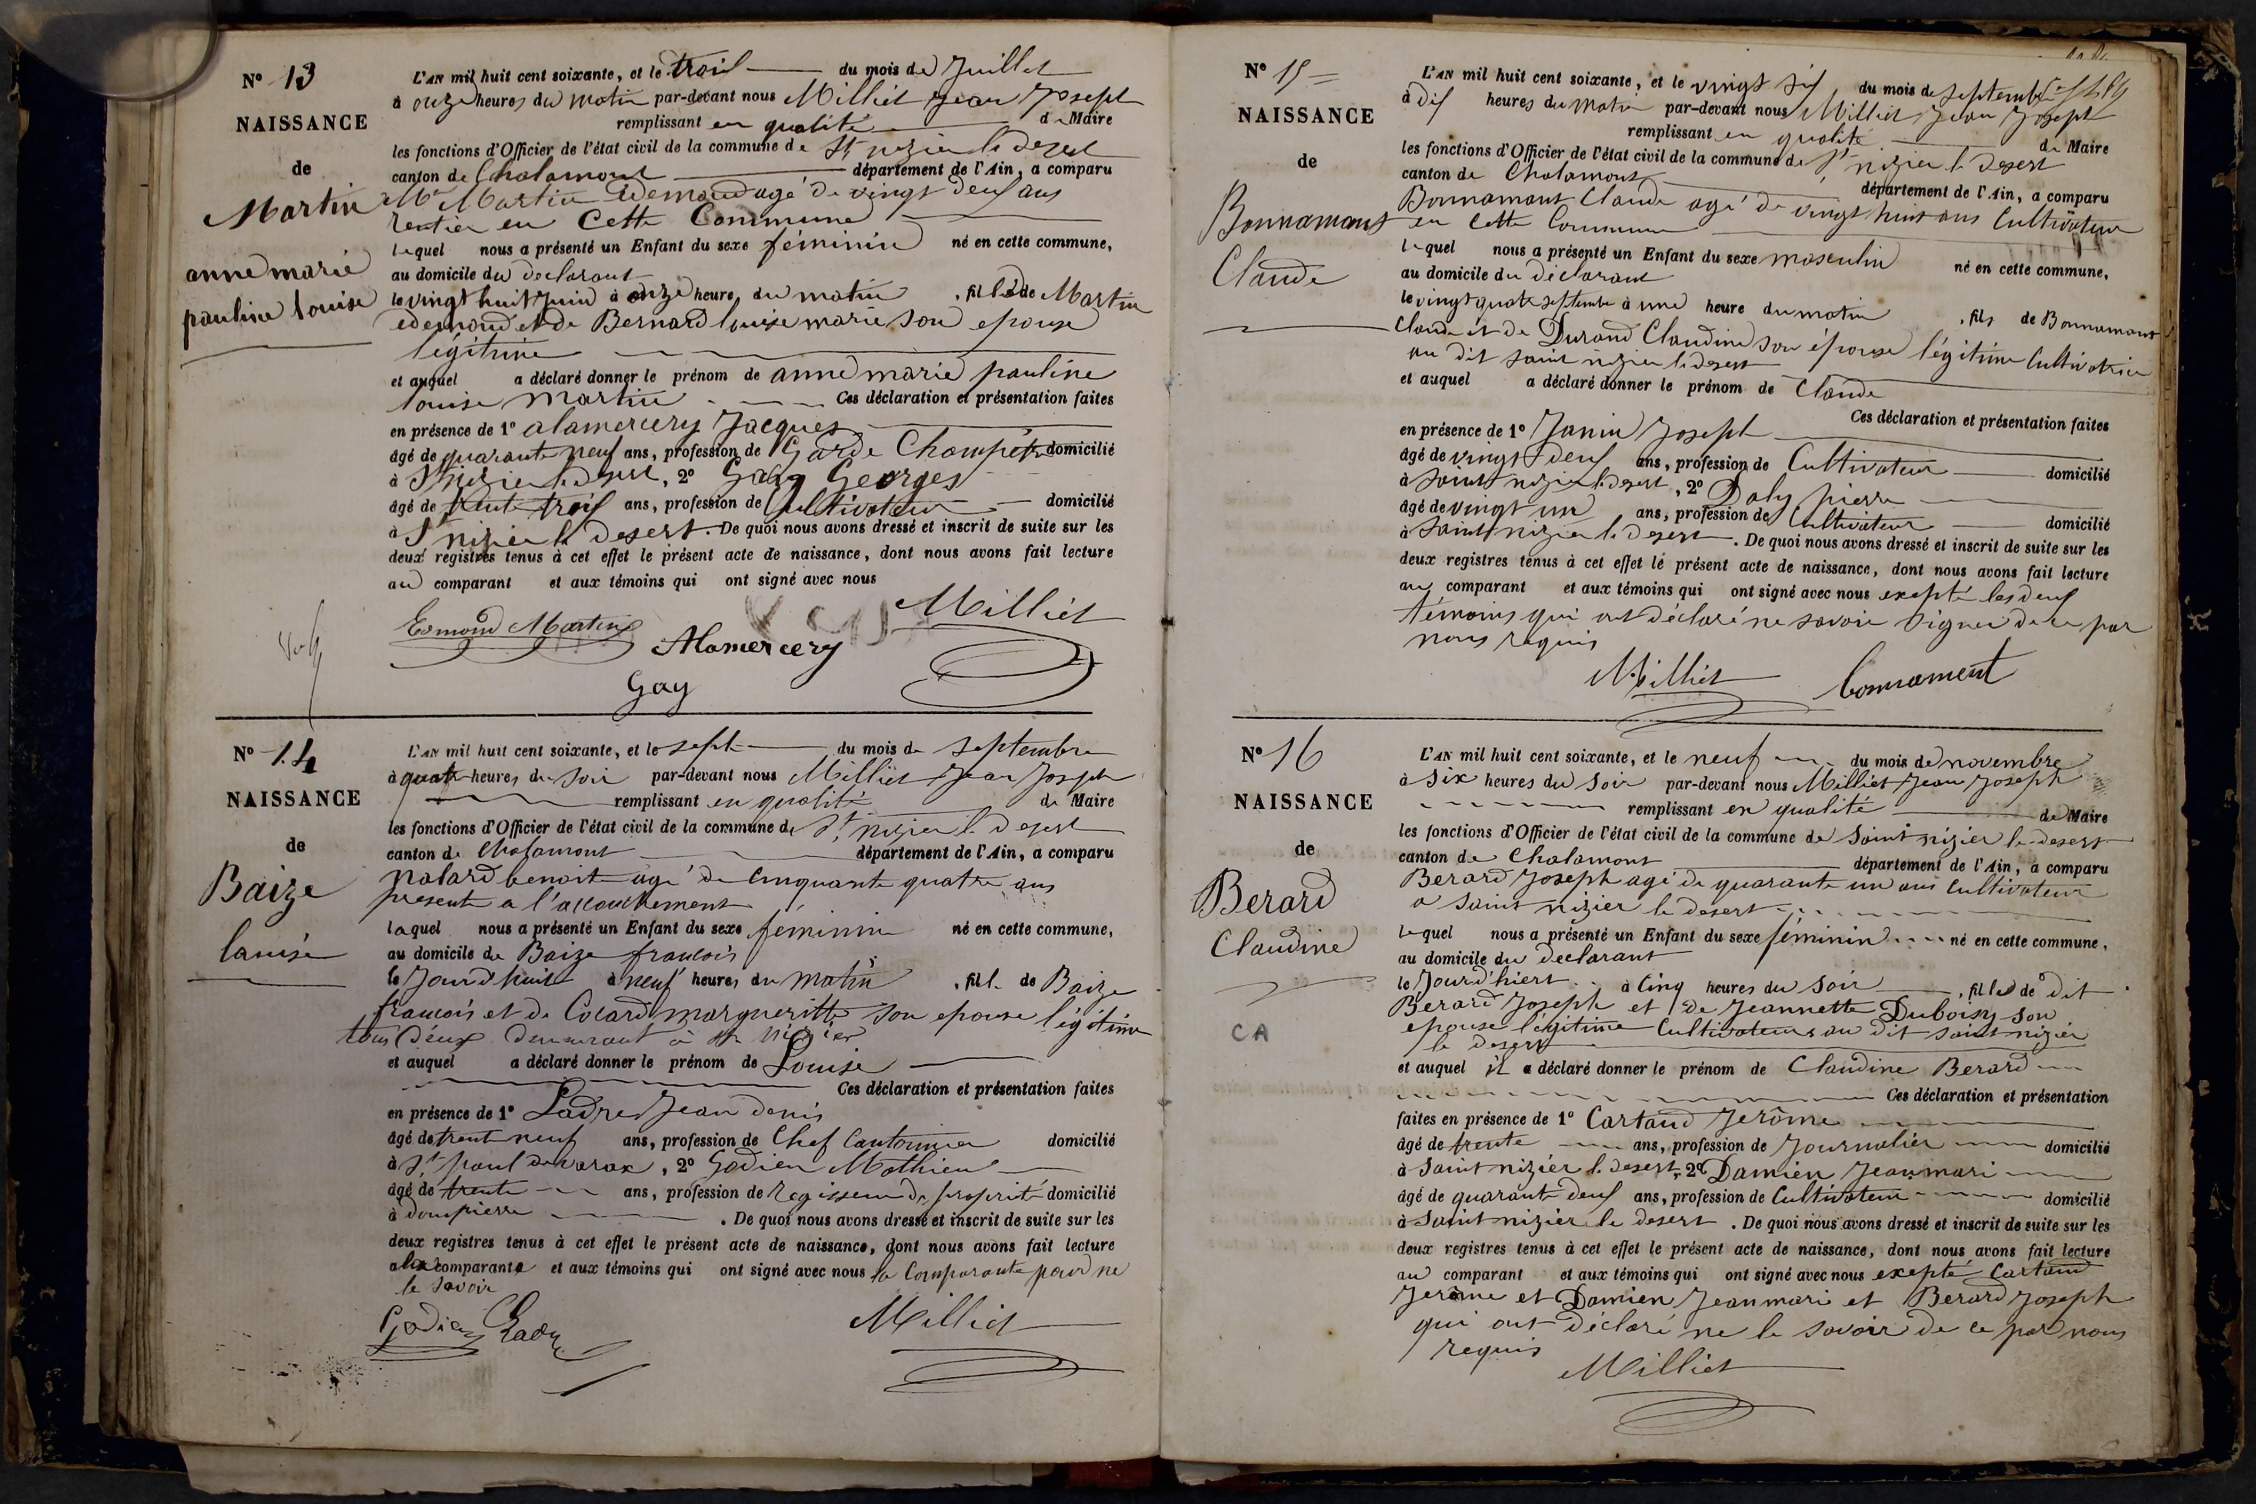 N° 13
NAISSANCE
de
Martin
anne marie
pauline louise
L'AN mil huit cent soixante, et le trois du mois de Juillet
à onze heures du matin par-devant nous Milliet Jean Joseph
remplissant en qualité de Maire
les fonctions d'Officier de l'état civil de la commune de St nizier le desert
canton de Chalamont département de l'Ain, a comparu
Mr Martin Edemond agé de vingt deux ans
rentier en Cette Commune
lequel nous a présenté un Enfant du sexe féminin né en cette commune,
au domicile du declarant
le vingt huit Juin à onze heure du matin , fille de Martin
Edemond et de Bernard louise marie son epouse
légitime
et auquel a déclaré donner le prénom de anne marie pauline
louise Martin Ces déclaration et présentation faites
en présence de 1° alamercery Jacques
âgé de quarante neuf ans, profession de Garde Champêtre domicilié
à St nizier le desert, 2° Gay Georges
âgé de trente trois ans, profession de Cultivateur domicilié
à St nizier le desert. De quoi nous avons dressé et inscrit de suite sur les
deux registres tenus à cet effet le présent acte de naissance, dont nous avons fait lecture
au comparant et aux témoins qui ont signé avec nous
Edmond Martin Alamercery Milliet
Gay
N° 14
NAISSANCE
de
Baize
louise
L'AN mil huit cent soixante, et le sept du mois de septembre
à quatre heures du soir par-devant nous Milliet Jean Joseph
remplissant en qualité de Maire
les fonctions d'Officier de l'état civil de la commune de St nizier le desert
canton de Chalamont département de l'Ain, a comparu
nalard benoite agé de Cinquante quatre ans
presente a l'accouchement
laquel nous a présenté un Enfant du sexe féminin né en cette commune,
au domicile de Baize francois
le Jourd'huit à neuf heures du matin , fille de Baize
francois et de Colard margueritte son epouse légitime
tous deux demeurant à St Nizier
et auquel a déclaré donner le prénom de Louise
Ces déclaration et présentation faites
en présence de 1° Ladre Jean denis
âgé de trente neuf ans, profession de Chef Cantonnier domicilié
à St paul de varax, 2° Godien Mathieu
âgé de trente ans, profession de regisseur de proprité domicilié
à dompierre . De quoi nous avons dressé et inscrit de suite sur les
deux registres tenus à cet effet le présent acte de naissance, dont nous avons fait lecture
a la comparante et aux témoins qui ont signé avec nous la Comparante pour ne
le savoir
Godien Ladre Milliet
N° 15
NAISSANCE
de
Bonnamant
Claude
L'AN mil huit cent soixante, et le vingt six du mois de septembre
à dix heures du matin par-devant nous Milliet Jean Joseph
remplissant en qualité de Maire
les fonctions d'Officier de l'état civil de la commune de St nizier le desert
canton de Chalamont département de l'Ain, a comparu
Bonnamant Claude agé de vingt huit ans Cultivateur
en cette Commune
lequel nous a présenté un Enfant du sexe masculin né en cette commune,
au domicile du déclarant
le vingt quatre septembre à une heure du matin , fils de Bonnamant
Claude et de Durand Claudine son épouse légitime Cultivatrice
au dit saint nizier le desert
et auquel a déclaré donner le prénom de Claude
Ces déclaration et présentation faites
en présence de 1° Janin Joseph
âgé de vingt deux ans, profession de Cultivateur domicilié
à saint nizier le desert, 2° Daly pierre
âgé de vingt un ans, profession de Cultivateur domicilié
à saint nizier le desert. De quoi nous avons dressé et inscrit de suite sur les
deux registres tenus à cet effet le présent acte de naissance, dont nous avons fait lecture
au comparant et aux témoins qui ont signé avec nous excepté les deux
témoins qui ont déclaré ne savoir signer de ce par
nous requis
Milliet Bonnament
N° 16
NAISSANCE
de
Berard
Claudine
CA
L'AN mil huit cent soixante, et le neuf du mois de novembre
à six heures du soir par-devant nous Milliet Jean Joseph
remplissant en qualité de Maire
les fonctions d'Officier de l'état civil de la commune de saint nizier le desert
canton de Chalamont département de l'Ain, a comparu
Berard Joseph agé de quarante un ans Cultivateur
a saint nizier le desert
lequel nous a présenté un Enfant du sexe féminin né en cette commune,
au domicile du declarant
le Jourd'hiert à Cinq heures du soir , fille de dit
Berard Joseph et de Jeannette Duboisy son
epouse légitime Cultivateurs au dit saint nizier
le desert
et auquel il a déclaré donner le prénom de Claudine Berard
Ces déclaration et présentation
faites en présence de 1° Cartaud Jerôme
âgé de trente ans, profession de Journalier domicilié
à saint nizier le desert, 2° Damien Jean mari
âgé de quarante deux ans, profession de Cultivateur domicilié
à saint nizier le desert. De quoi nous avons dressé et inscrit de suite sur les
deux registres tenus à cet effet le présent acte de naissance, dont nous avons fait lecture
au comparant et aux témoins qui ont signé avec nous excepté Cartaud
Jerôme et Damien Jean mari et Berard Joseph
qui ont déclaré ne le savoir de ce par nous
requis
Milliet